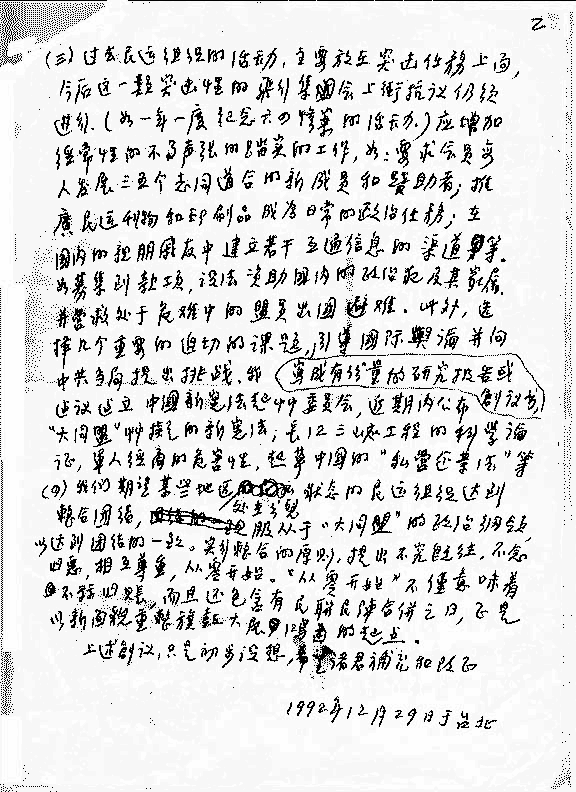 2
(三)过去民运组织的活动,主要放在突击任务上面,
今后这一类突击性的飞行集会上街抗议仍须
进行.(如一年一度纪念六四惨案的活动.)应增加
经常性的不事声张的踏实的工作,如:要求会员每
人发展三五个志同道合的新成员和赞助者;推
廣民运刊物和印刷品成为日常的政治任务;在
國内的親朋戚友中建立若干互通信息的渠道等.
如募集到款项,设法资助國内的政治犯及其家属
并营救处于危难中的盟员出國避难.此外,选
择几个重要的迫切的课题,引导國际舆论并向
中共当局提出挑战.我 写成有份量的研究报告或 創议书
建议建立中國新憲法起草委员会,近期内公布
"大同盟"草擬之的新憲法;長江三峡工程的科学论
证,軍人經商的危害性,起草中國的"私营企業法"等
(四)我们期望某些地区 处在分裂 状态的民运组织达到
整合团结, 服从于"大同盟"的政治纲领,
以达到团结的一致。实行整合的原则,提出不究既往,不念
旧恶,相互尊重,从零开始。"从零开始"不僅意味着
不算旧账,而且还包含有民联民陣合併之日,正是
以新面貌重整旗鼓大展 的起点。
上述創议,只是初步设想,希望诸君補充和改正
1992年12月29日于台北